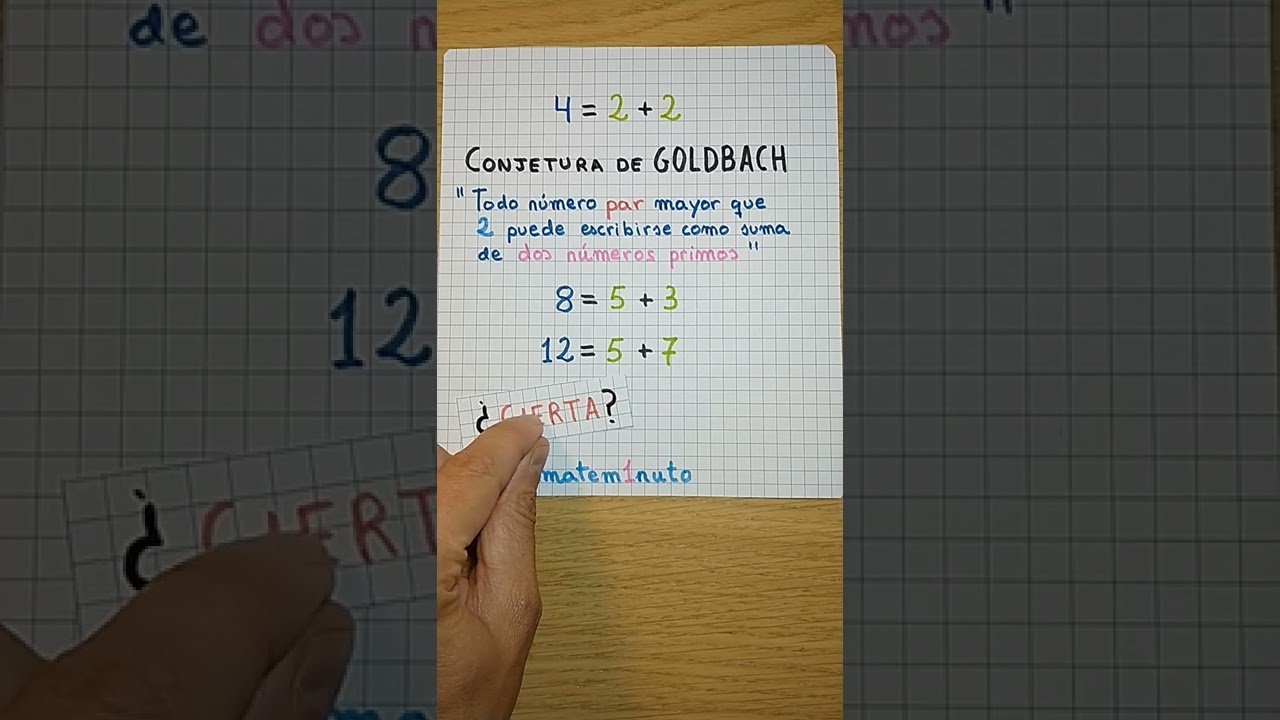 4 = 2 + 2
CONJETURA DE GOLDBACH
"Todo número par mayor que
2 puede escribirse como suma
de dos números primos"
8 = 5 + 3
12 = 5 + 7
¿CIERTA?
matem1nuto